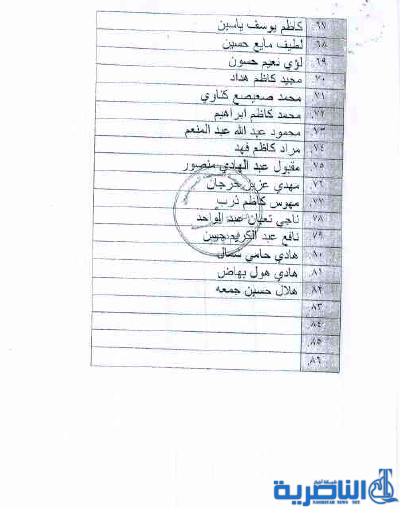 ٦٧. كاظم يوسف ياسين
٦٨. لطيف مايع حسين
٦٩. لؤي نعيم حسون
٧٠. مجيد كاظم هداد
٧١. محمد صعيصع كناوي
٧٢. محمد كاظم ابراهيم
٧٣. محمود عبد الله عبد المنعم
٧٤. مراد كاظم فهد
٧٥. مقبول عبد الهادي منصور
٧٦. مهدي عزيز خرجان
٧٧. مهوس كاظم ذرب
٧٨. ناجي تعبان عبد الواحد
٧٩. نافع عبد الكريم حسن
٨٠. هادي حامي شمال
٨١. هادي هول بهاض
٨٢. هلال حسين جمعه
٨٣.
٨٤.
٨٥.
٨٦.
شبكة أخبار
الناصرية
NASIRIYAH NEWS NET